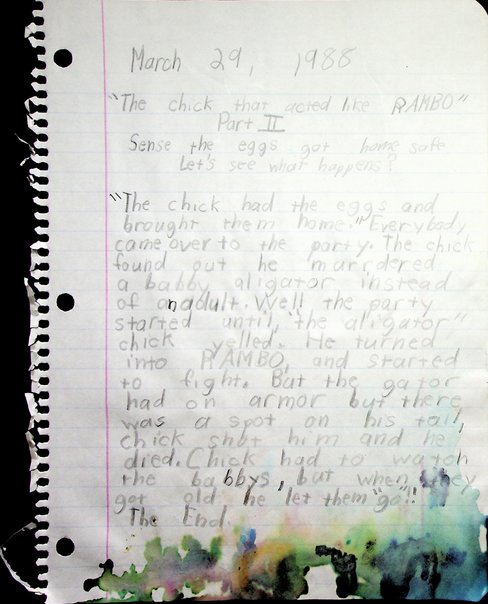 March 29, 1988
"The chick that acted like RAMBO"
Part II
Sense the eggs got home safe
Let's see what happens?
"The chick had the eggs and
brought them home." Everybody
came over to the party. The chick
found out he murrdered
a babby aligator instead
of an adult. Well the party
started until, "the aligator"
chick yelled. He turned
into RAMBO, and started
to fight. But the gator
had on armor but there
was a spot on his tail,
chick shot him and he
died. Chick had to watch
the babbys, but when they
got old he let them "go!"
The End.